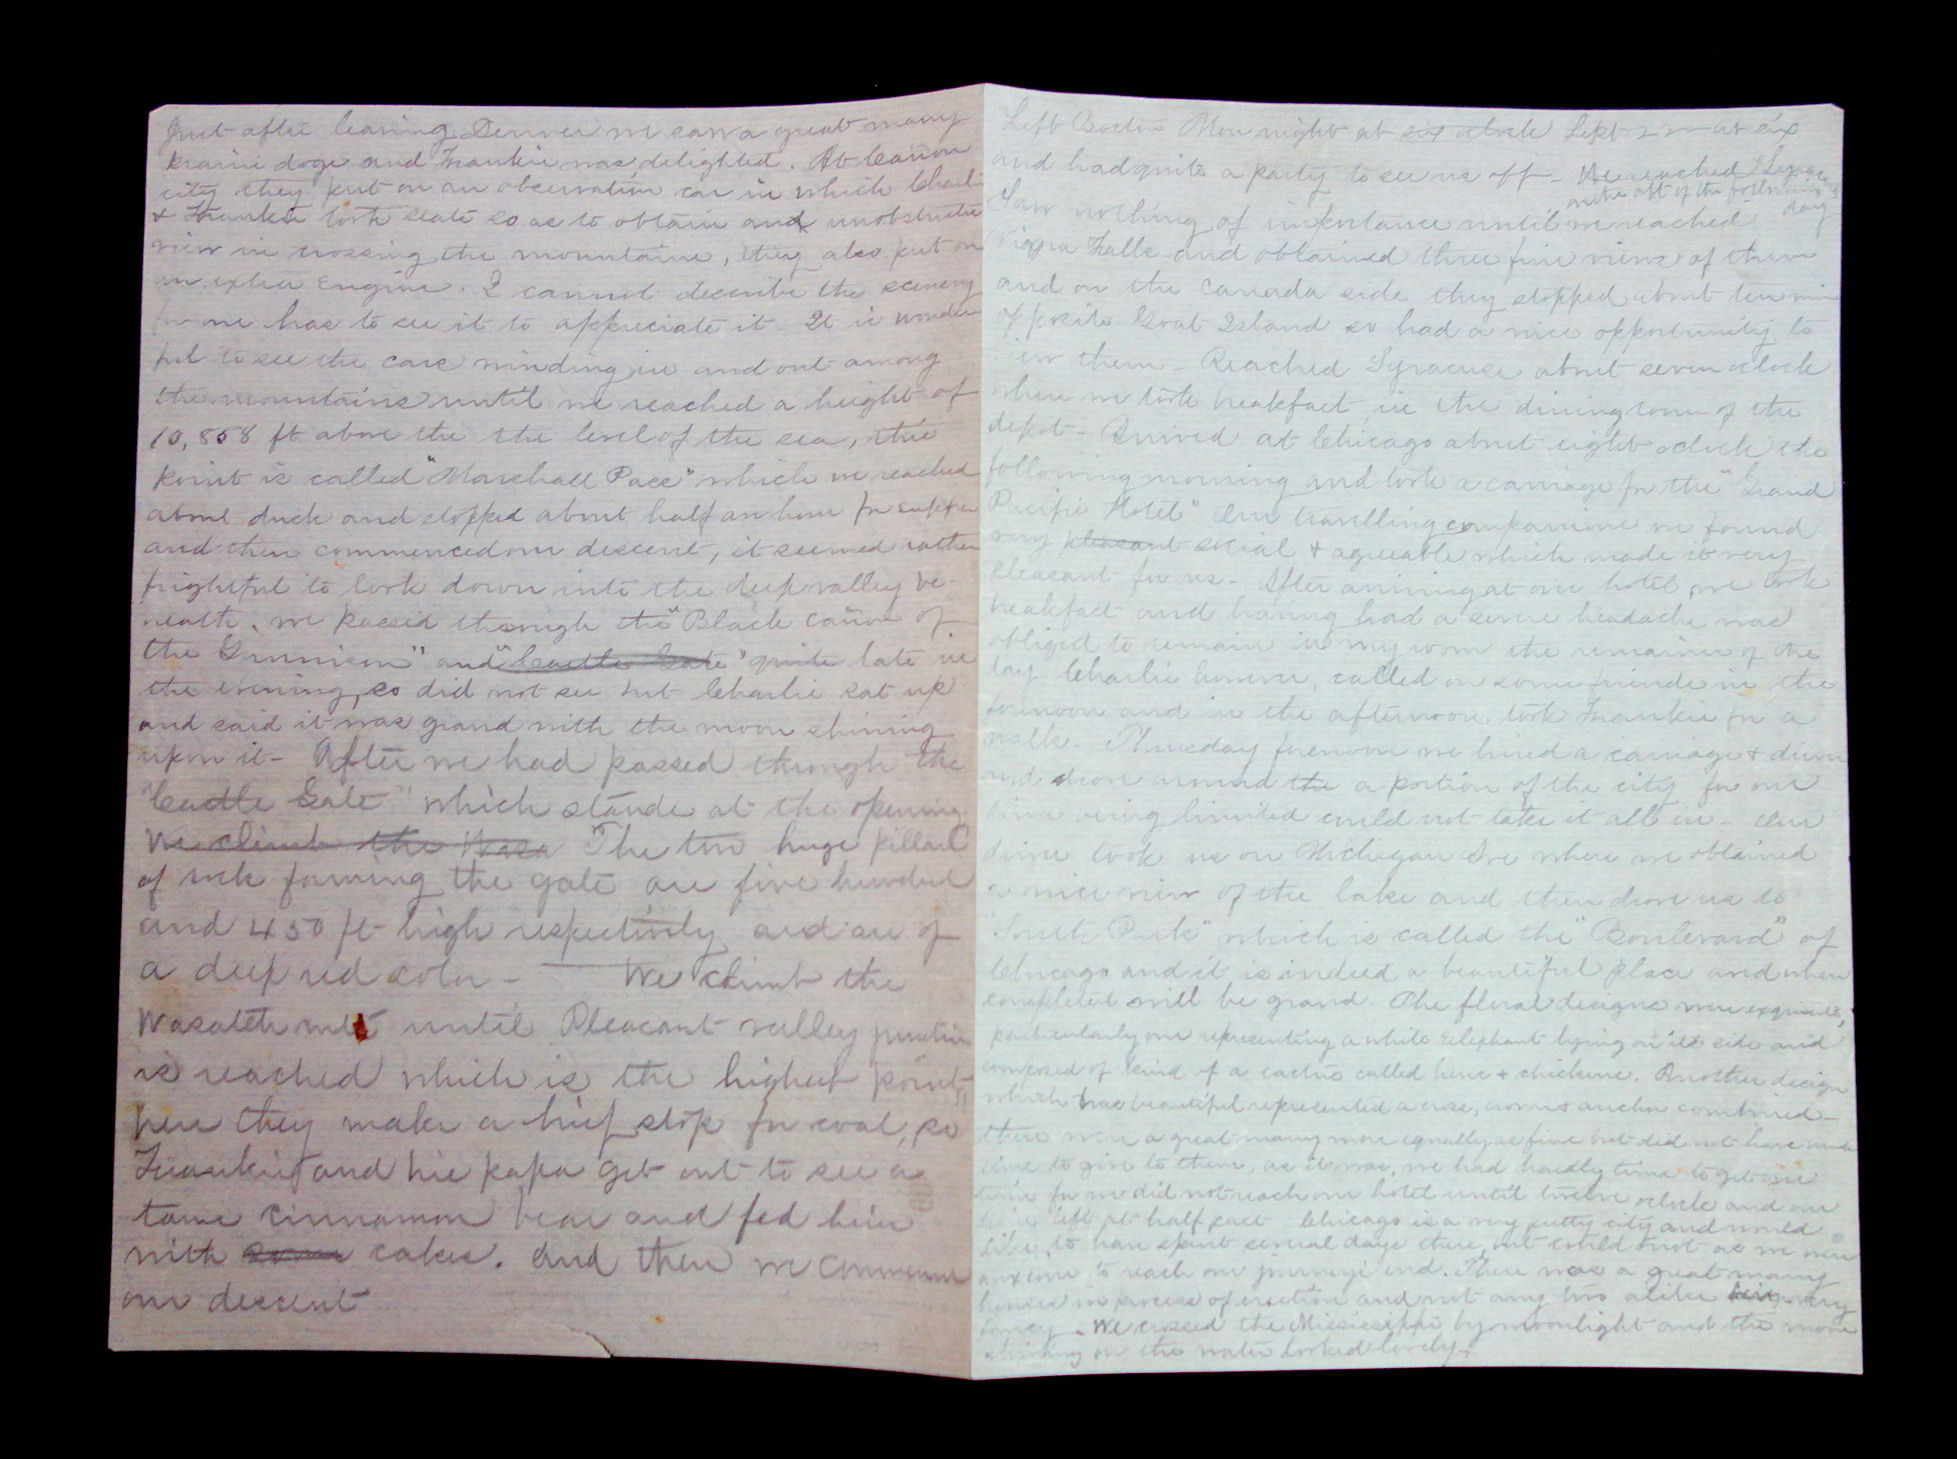 Just after leaving Denver we saw a great many
prairie dogs and Frankie was delighted. At Cañon
city they put on an observation car in which Charlie
& Frankie took seats so as to obtain and unobstructed
view in crossing the mountains, they also put on
an extra Engine. I cannot describe the scenery
for one has to see it to appreciate it. It is wonder
ful to see the cars winding in and out among
the mountains until we reached a height of
10,858 ft above the the level of the sea, this
point is called "Marshall Pass" which we reached
about dusk and stopped about half an hour for supper
and then commenced our descent, it seemed rather
frightful to look down into the deep valley be-
neath. we passed through the "Black cañon of
the Gunnison" and "Castle Gate" quite late in
the evening, so did not see but Charlie sat up
and said it was grand with the moon shining
upon it - After we had passed through the
"Castle Gate" which stands at the opening.
We climb the Wasa The two huge pillars
of rock forming the gate are five hundred
and 450 ft high respectively and are of
a deep red color - We climb the
Wasatch mts until Pleasant valley junction
is reached which is the highest point,
here they make a brief stop for coal, so
Frankie and his papa got out to see a
tame cinnamon bear and fed him
with some cakes. And then we commence
our descent
Left Boston Mon night at six oclock Sept 22 at six
and had quite a party to see us off - We reached Syracuse
on the aft of the following day
Saw nothing of importance until we reached
Niagra Falls and obtained three fine views of them
and on the Canada side they stopped about ten min
opposite Goat Island so had a nice opportunity to
view them - Reached Syracuse about seven oclock
where we took breakfast in the diningroom of the
depot - Arrived at Chicago about eight oclock the
following morning and took a carriage for the "Grand
Pacific Hotel" Our travelling companions we found
very pleasant social & agreeable which made it very
pleasant for us - After arriving at our hotel we took
breakfast and having had a severe headache was
obliged to remain in my room the remainer of the
day Charlie however, called on some friends in the
forenoon and in the afternoon took Frankie for a
walk - Thursday forenoon we hired a carriage & driver
and drove around the a portion of the city for our
time being limited could not take it all in - Our
driver took us on Michigan Ave where we obtained
a nice view of the lake and then drove us to
"South Park" which is called the "Boulevard" of
Chicago and it is indeed a beautiful place and when
completed will be grand. The floral designs were exquisite,
particularly one representing a white Elephant lying on its side and
composed of kind of a cactus called hens & chickens. Another design
which was beautiful represented a cross, crown & anchor combined -
there were a great many more equally as fine but did not have much
time to give to them, as it was, we had hardly time to get our
train for we did not reach our hotel until twelve oclock and our
train left at half past Chicago is a very pretty city and would
like to have spent several days there, but could not as we were
anxious to reach our journeys end. There was a great many
houses in process of erection and not any two alike being very
fancy. We crossed the Mississippi by moonlight and the moon
shining on the water looked lovely -